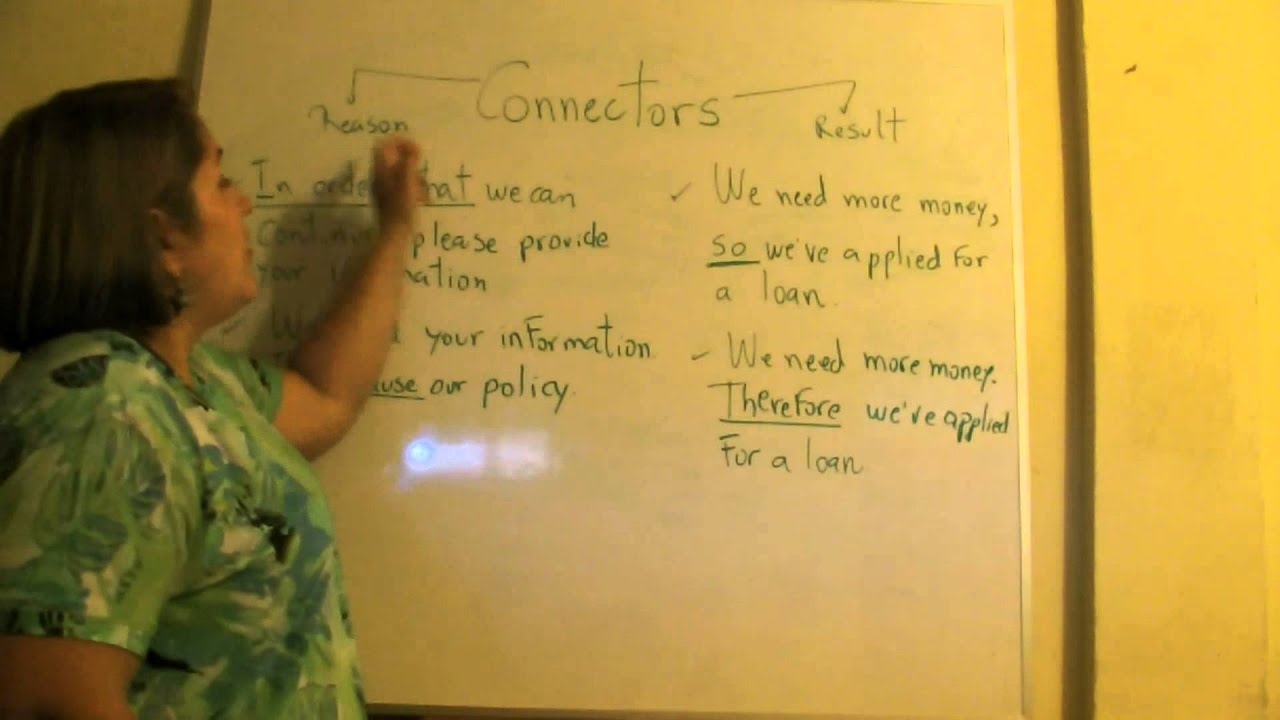 Connectors
Reason
Result
In order that we can
please provide
your
your information
our policy.
We need more money,
so we've applied For
a loan.
We need more money.
Therefore we've applied
For a loan